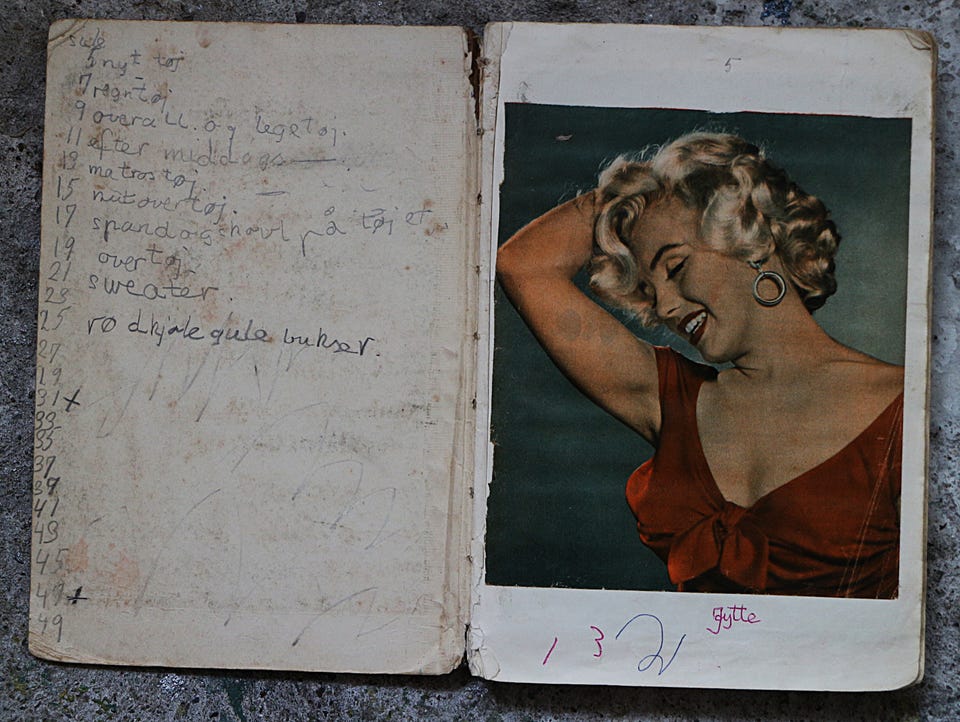 side
5 nyt tøj
7 regntøj
9 overall. og legetøj.
11 efter middags —.
13 matrostøj.
15 natovertøj. —
17 spand og skovl på tøjet
19 overtøj.
21 sweater.
23
25 rødkjole gule bukser.
27
29
31 x
33
35
37
39
41
43
45
49
5
Jytte
1 3 2 1